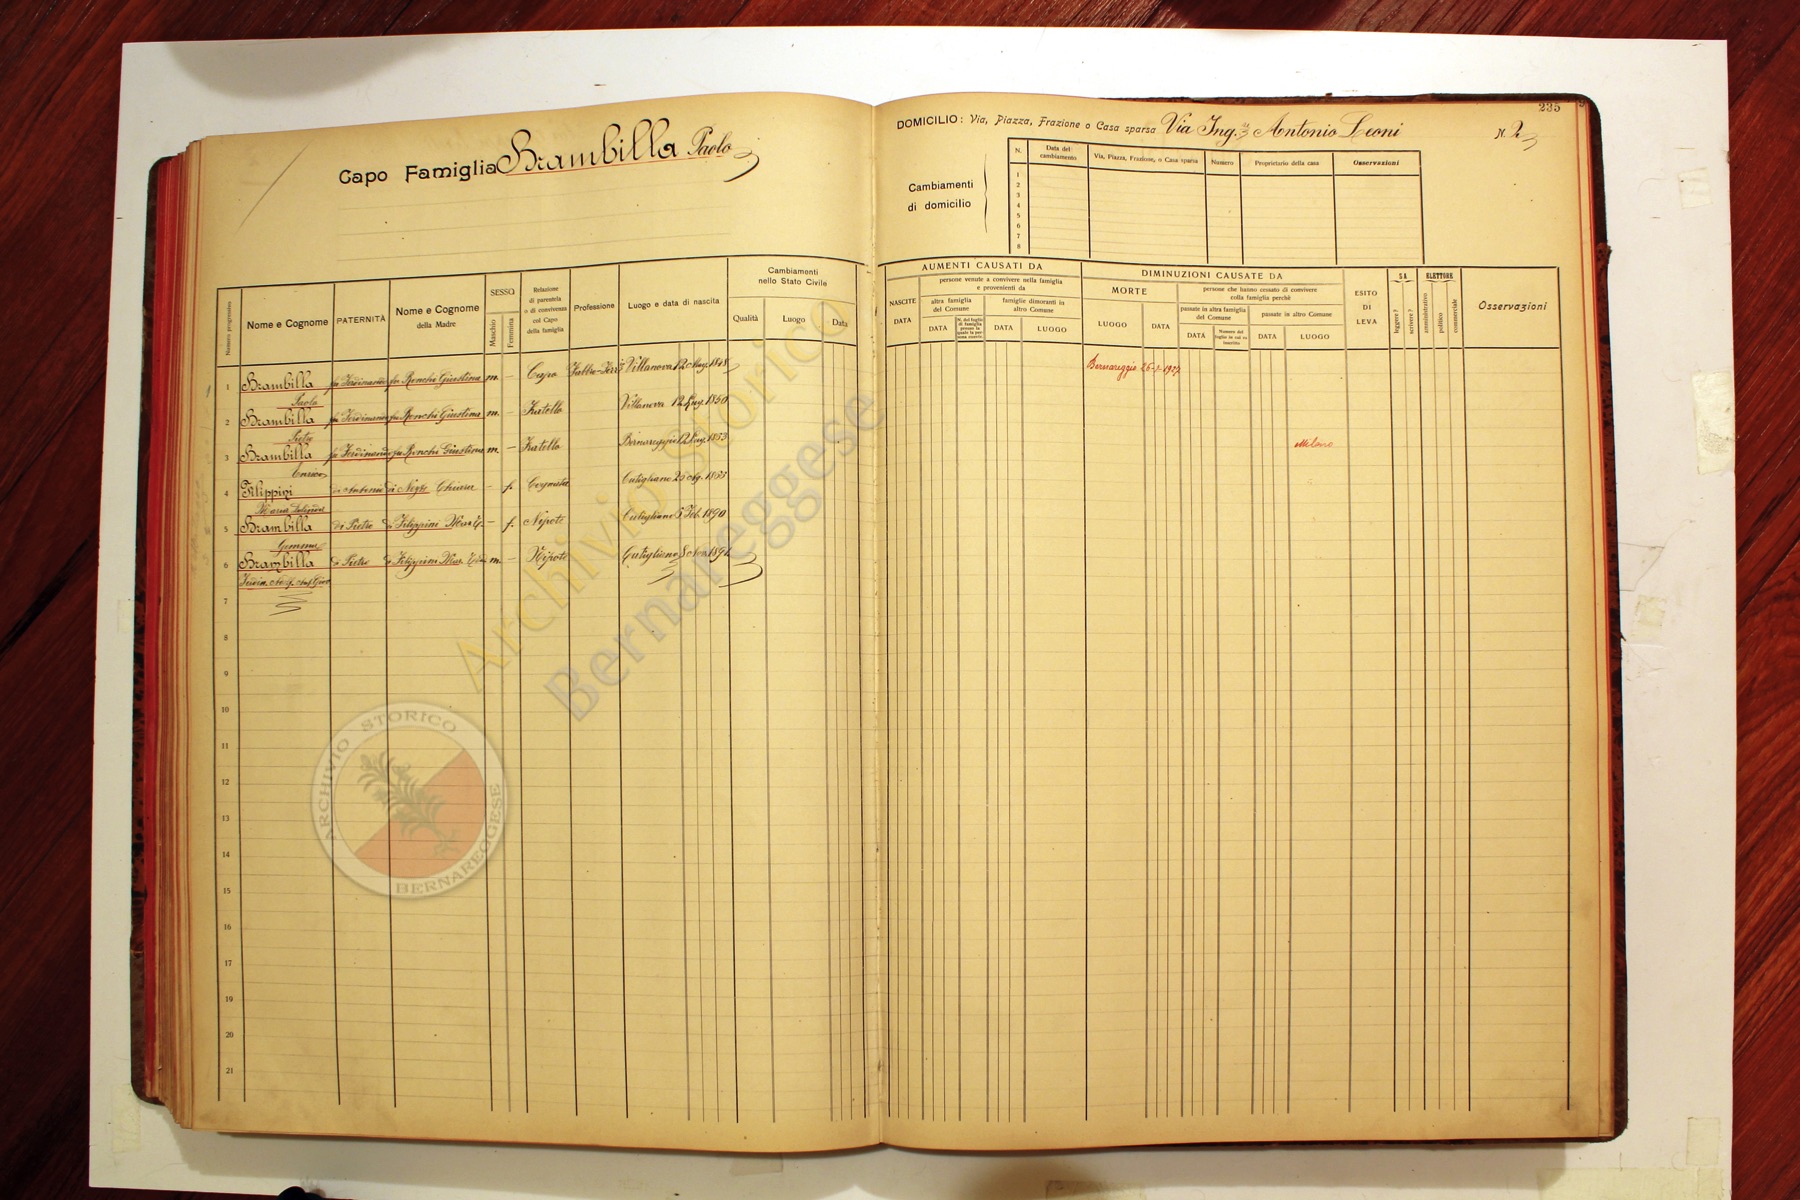 Capo Famiglia Brambilla Paolo
235
DOMICILIO: Via, Piazza, Frazione o Casa sparsa Via Ing. Antonio Leoni N. 2
Cambiamenti
di domicilio
N. Data del cambiamento Via, Piazza, Frazione, o Casa sparsa Numero Proprietario della casa Osservazioni
1
2
3
4
5
6
7
8
Numero progressivo
Nome e Cognome
PATERNITÀ
Nome e Cognome
della Madre
SESSO
Maschio
Femmina
Relazione
di parentela
o di convivenza
col Capo
della famiglia
Professione
Luogo e data di nascita
Cambiamenti
nello Stato Civile
Qualità Luogo Data
AUMENTI CAUSATI DA
NASCITE
DATA
persone venute a convivere nella famiglia
e provenienti da
altra famiglia
del Comune
DATA
famiglie dimoranti in
altro Comune
DATA LUOGO
DIMINUZIONI CAUSATE DA
MORTE
LUOGO DATA
persone che hanno cessato di convivere
colla famiglia perchè
passate in altra famiglia
del Comune
DATA
passate in altro Comune
DATA LUOGO
ESITO
DI
LEVA
SA
leggere?
scrivere?
ELETTORE
amministrativo
politico
commerciale
Osservazioni
1 Brambilla fu Ferdinando fu Ronchi Giustina m. – Capo Villanova 1848 Bernareggio
Paolo
2 Brambilla fu Ferdinando fu Ronchi Giustina m. – Fratello Villanova 12 1850
Pietro
3 Brambilla fu Ferdinando fu Ronchi Giustina m. – Fratello Bernareggio 12 1853 Milano
Enrico
4 Filippini di Antonio Chiara – f. Cognata Cutigliano
Maria
5 Brambilla di Pietro di Filippini – f. Nipote Cutigliano 5 Feb. 1890
Gemma
6 Brambilla di Pietro di Filippini m. – Nipote Cutigliano
7
8
9
10
11
12
13
14
15
16
17
19
20
21
Archivio Storico
Bernareggese
ARCHIVIO STORICO
BERNAREGGESE